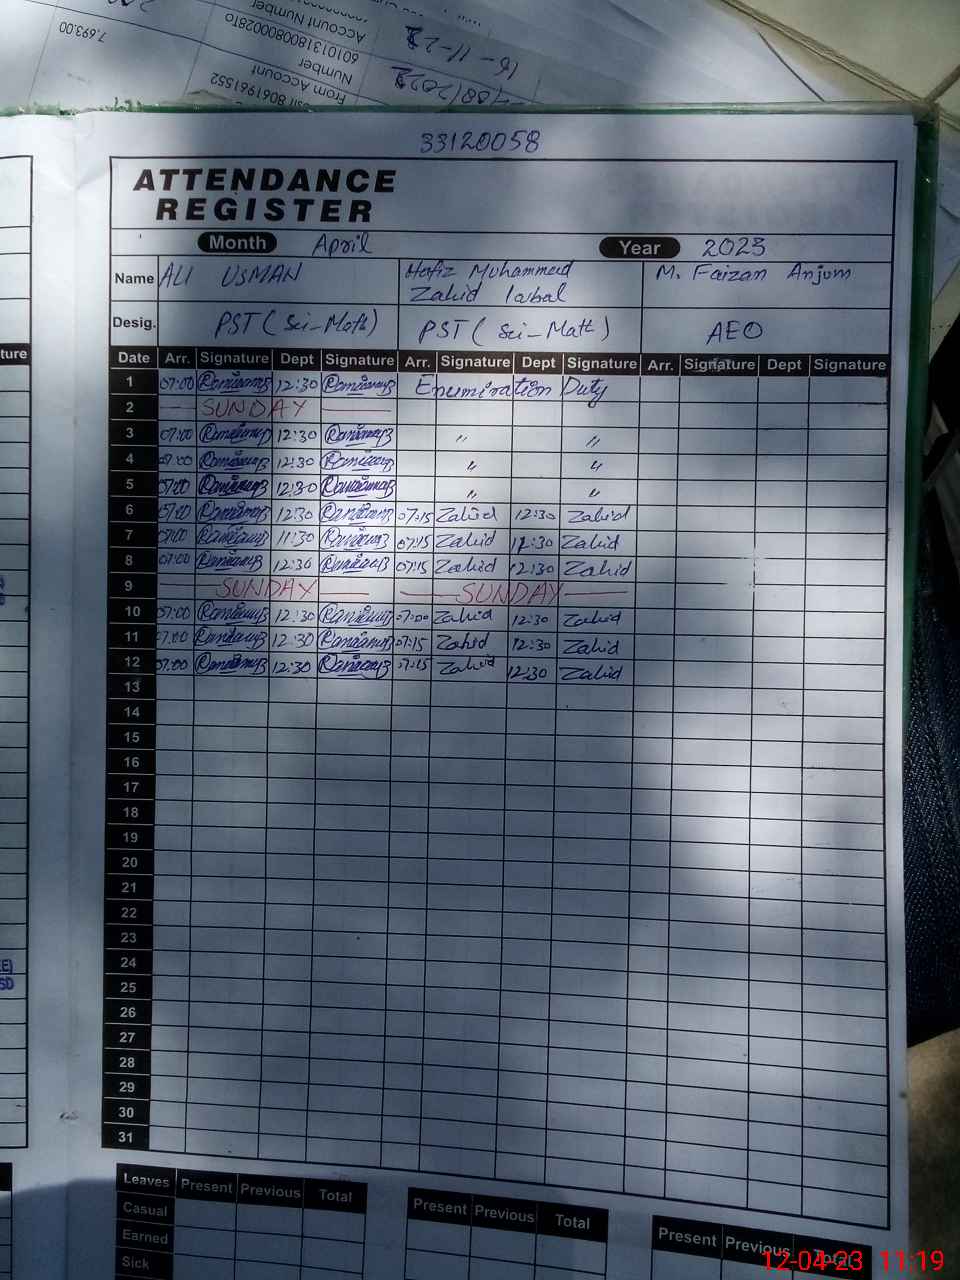 7,693.00
Account Number
60101318008000028To
Number
From Account
8061961552
16-11-22
33120058
ATTENDANCE
REGISTER
Month April Year 2023
Name ALI USMAN Hafiz Muhammad Zahid Iqbal M. Faizan Anjum
Desig. PST (Sci-Math) PST (Sci-Math) AEO
ture
Date Arr. Signature Dept Signature Arr. Signature Dept Signature Arr. Signature Dept Signature
1 07:00 12:30 Enumiration Duty
2 SUNDAY
3 07:00 12:30 " "
4 07:00 12:30 " "
5 07:00 12:30 " "
6 07:00 12:30 07:15 Zahid 12:30 Zahid
7 07:00 11:30 07:15 Zahid 12:30 Zahid
8 07:00 12:30 07:15 Zahid 12:30 Zahid
9 SUNDAY SUNDAY
10 07:00 12:30 07:00 Zahid 12:30 Zahid
11 07:00 12:30 07:15 Zahid 12:30 Zahid
12 07:00 12:30 07:15 Zahid 12:30 Zahid
13
14
15
16
17
18
19
20
21
22
23
24
25
26
27
28
29
30
31
Leaves Present Previous Total Present Previous Total Present Previous Total
Casual
Earned
Sick
12-04-23 11:19